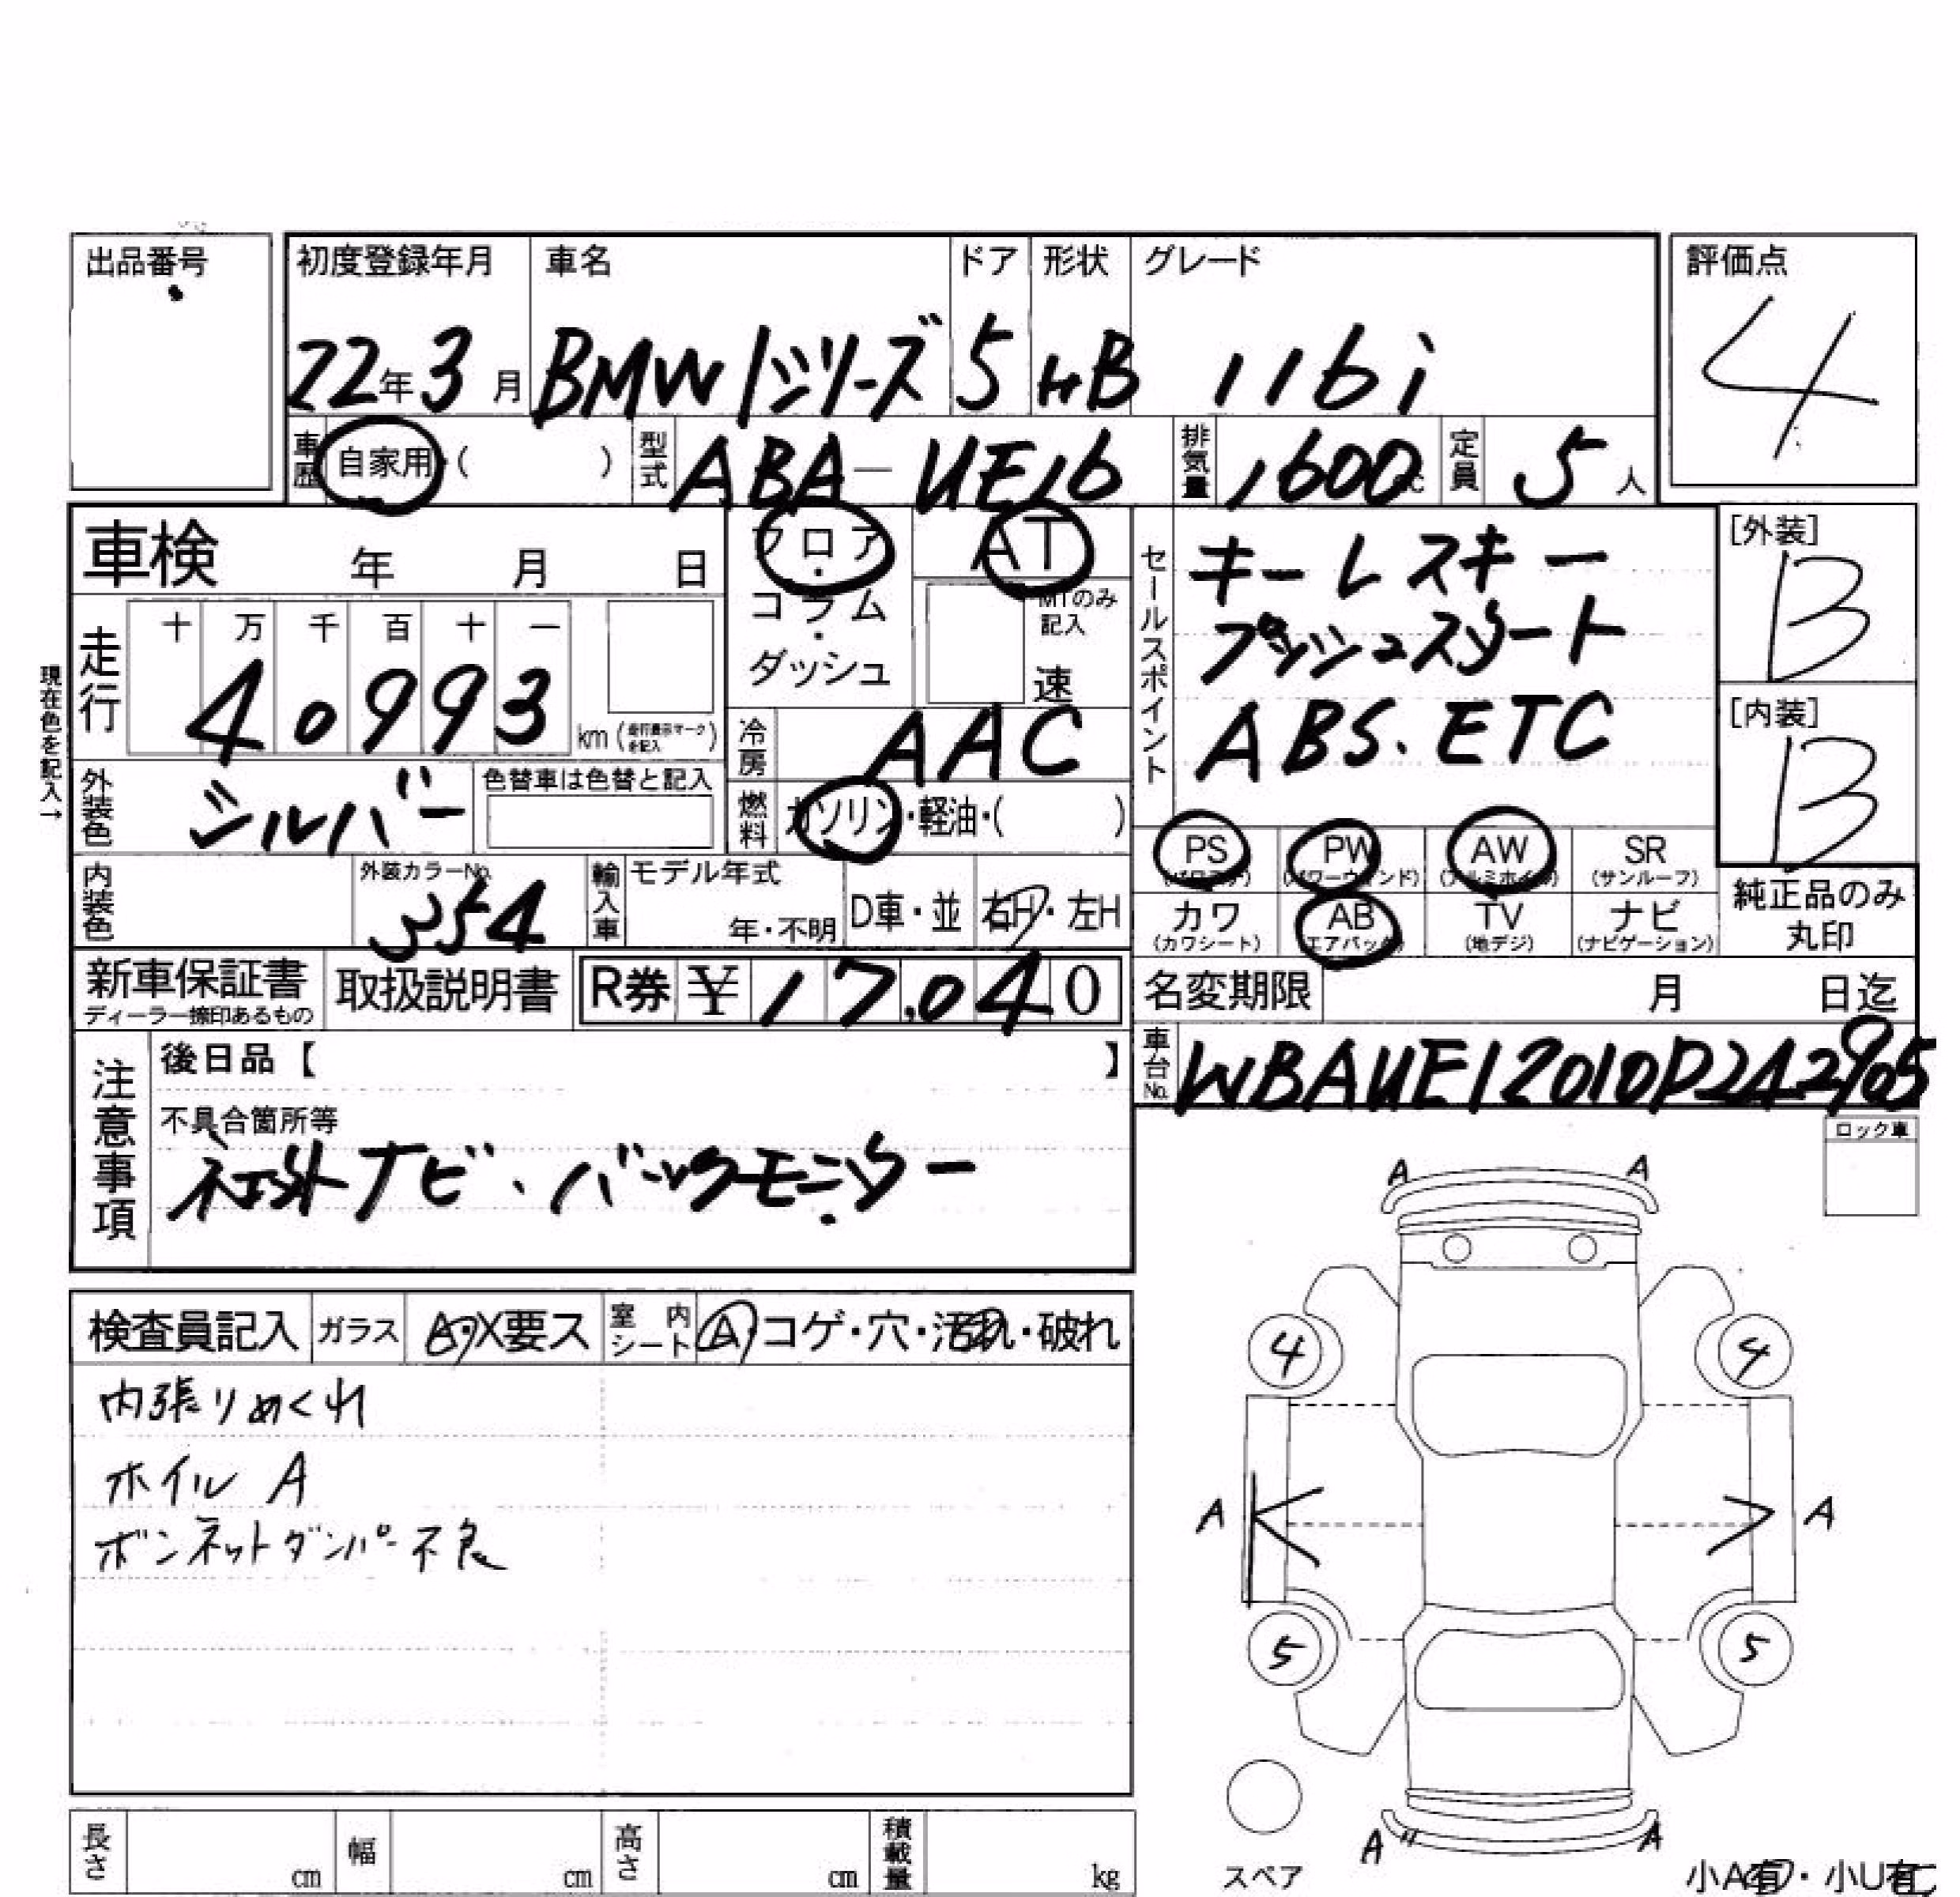 出品番号
初度登録年月 車名 ドア 形状 グレード 評価点
22年3月 BMW1シリーズ 5 HB 116i 4
車歴 自家用・( ) 型式 ABA-UE16 排気量 1600cc 定員 5人
車検 年 月 日
フロア・コラム・ダッシュ
AT
MTのみ記入
速
セールスポイント
キーレスキー
プッシュスタート
ABS.ETC
[外装]
B
[内装]
B
現在色を記入→
走行 十 万 千 百 十 一
40993 km(走行表示マークを記入)
冷房 AAC
外装色 シルバー 色替車は色替と記入
燃料 ガソリン・軽油・( )
PS (パワステ) PW (パワーウィンド) AW (アルミホイル) SR (サンルーフ)
カワ (カワシート) AB (エアバック) TV (地デジ) ナビ (ナビゲーション)
純正品のみ
丸印
内装色 外装カラーNo. 354 輸入車 モデル年式 年・不明 D車・並 右H・左H
新車保証書 ディーラー捺印あるもの 取扱説明書 R券 ¥17,040
名変期限 月 日迄
車台No. WBAUE12010P242905
注意事項
後日品【 】
不具合箇所等
社外ナビ.バックモニター
ロック車
検査員記入 ガラス A・X要ス 室内シート A・コゲ・穴・汚れ・破れ
内張りめくれ
ホイル A
ボンネットダンパー不良
A A
4 4
A A
5 5
A A
スペア
小A有・小U有
長さ cm 幅 cm 高さ cm 積載量 kg